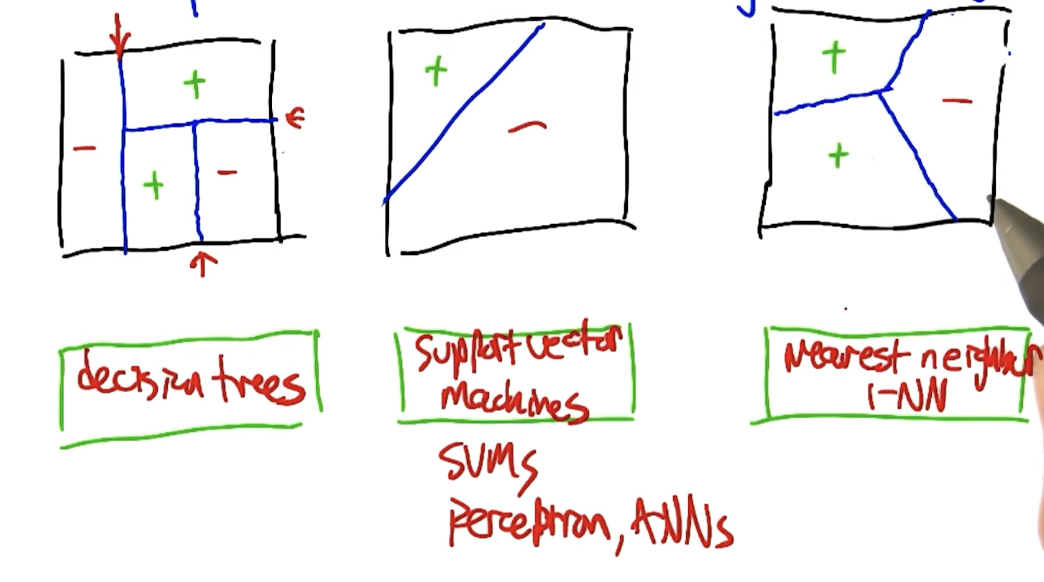 decision trees
support vector
machines
SVMs
perceptron, ANNs
Nearest neighbur
1-NN